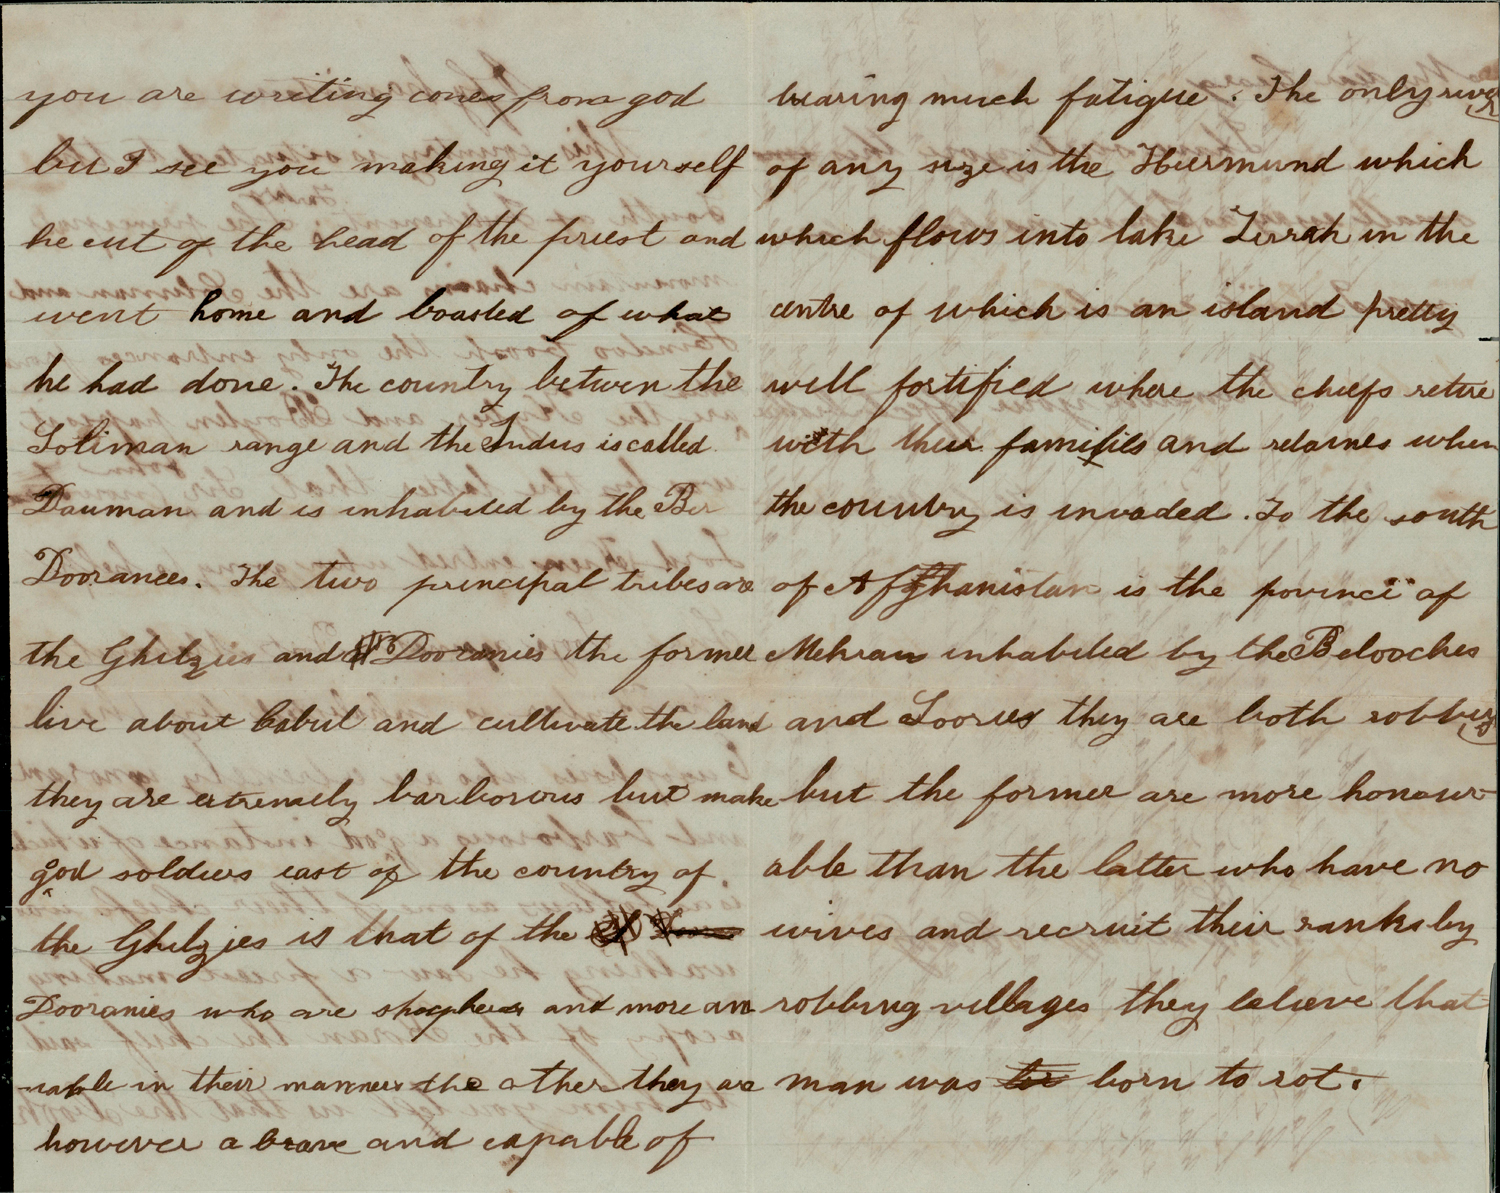 you are writing comes from god
but I see you making it yourself
he cut of the head of the priest and
went home and boasted of what
he had done. The country between the
Soliman range and the Indus is called
Dauman and is inhabited by the Ber
Dooranees. The two principal tribes are
the Ghilzies and Dooranies the former
live about Cabul and cultivate the land
they are extremely barborous but make
good soldiers east of the country of
the Ghilzies is that of the
Dooranies who are shepherds and more am
-iable in their manners the other they are
however a brave and capable of
bearing much fatigue. The only river
of any size is the Heermund which
which flows into lake Zirrah in the
centre of which is an island pretty
well fortified where the chiefs retire
with their families and retaines when
the country is invaded. To the south
of Afghanistan is the povince of
Mekran inhabited by the Belooches
and Loories they are both robbers
but the former are more honour-
able than the latter who have no
wives and recruit their ranks by
robbing villages they believe that
man was born to rot.